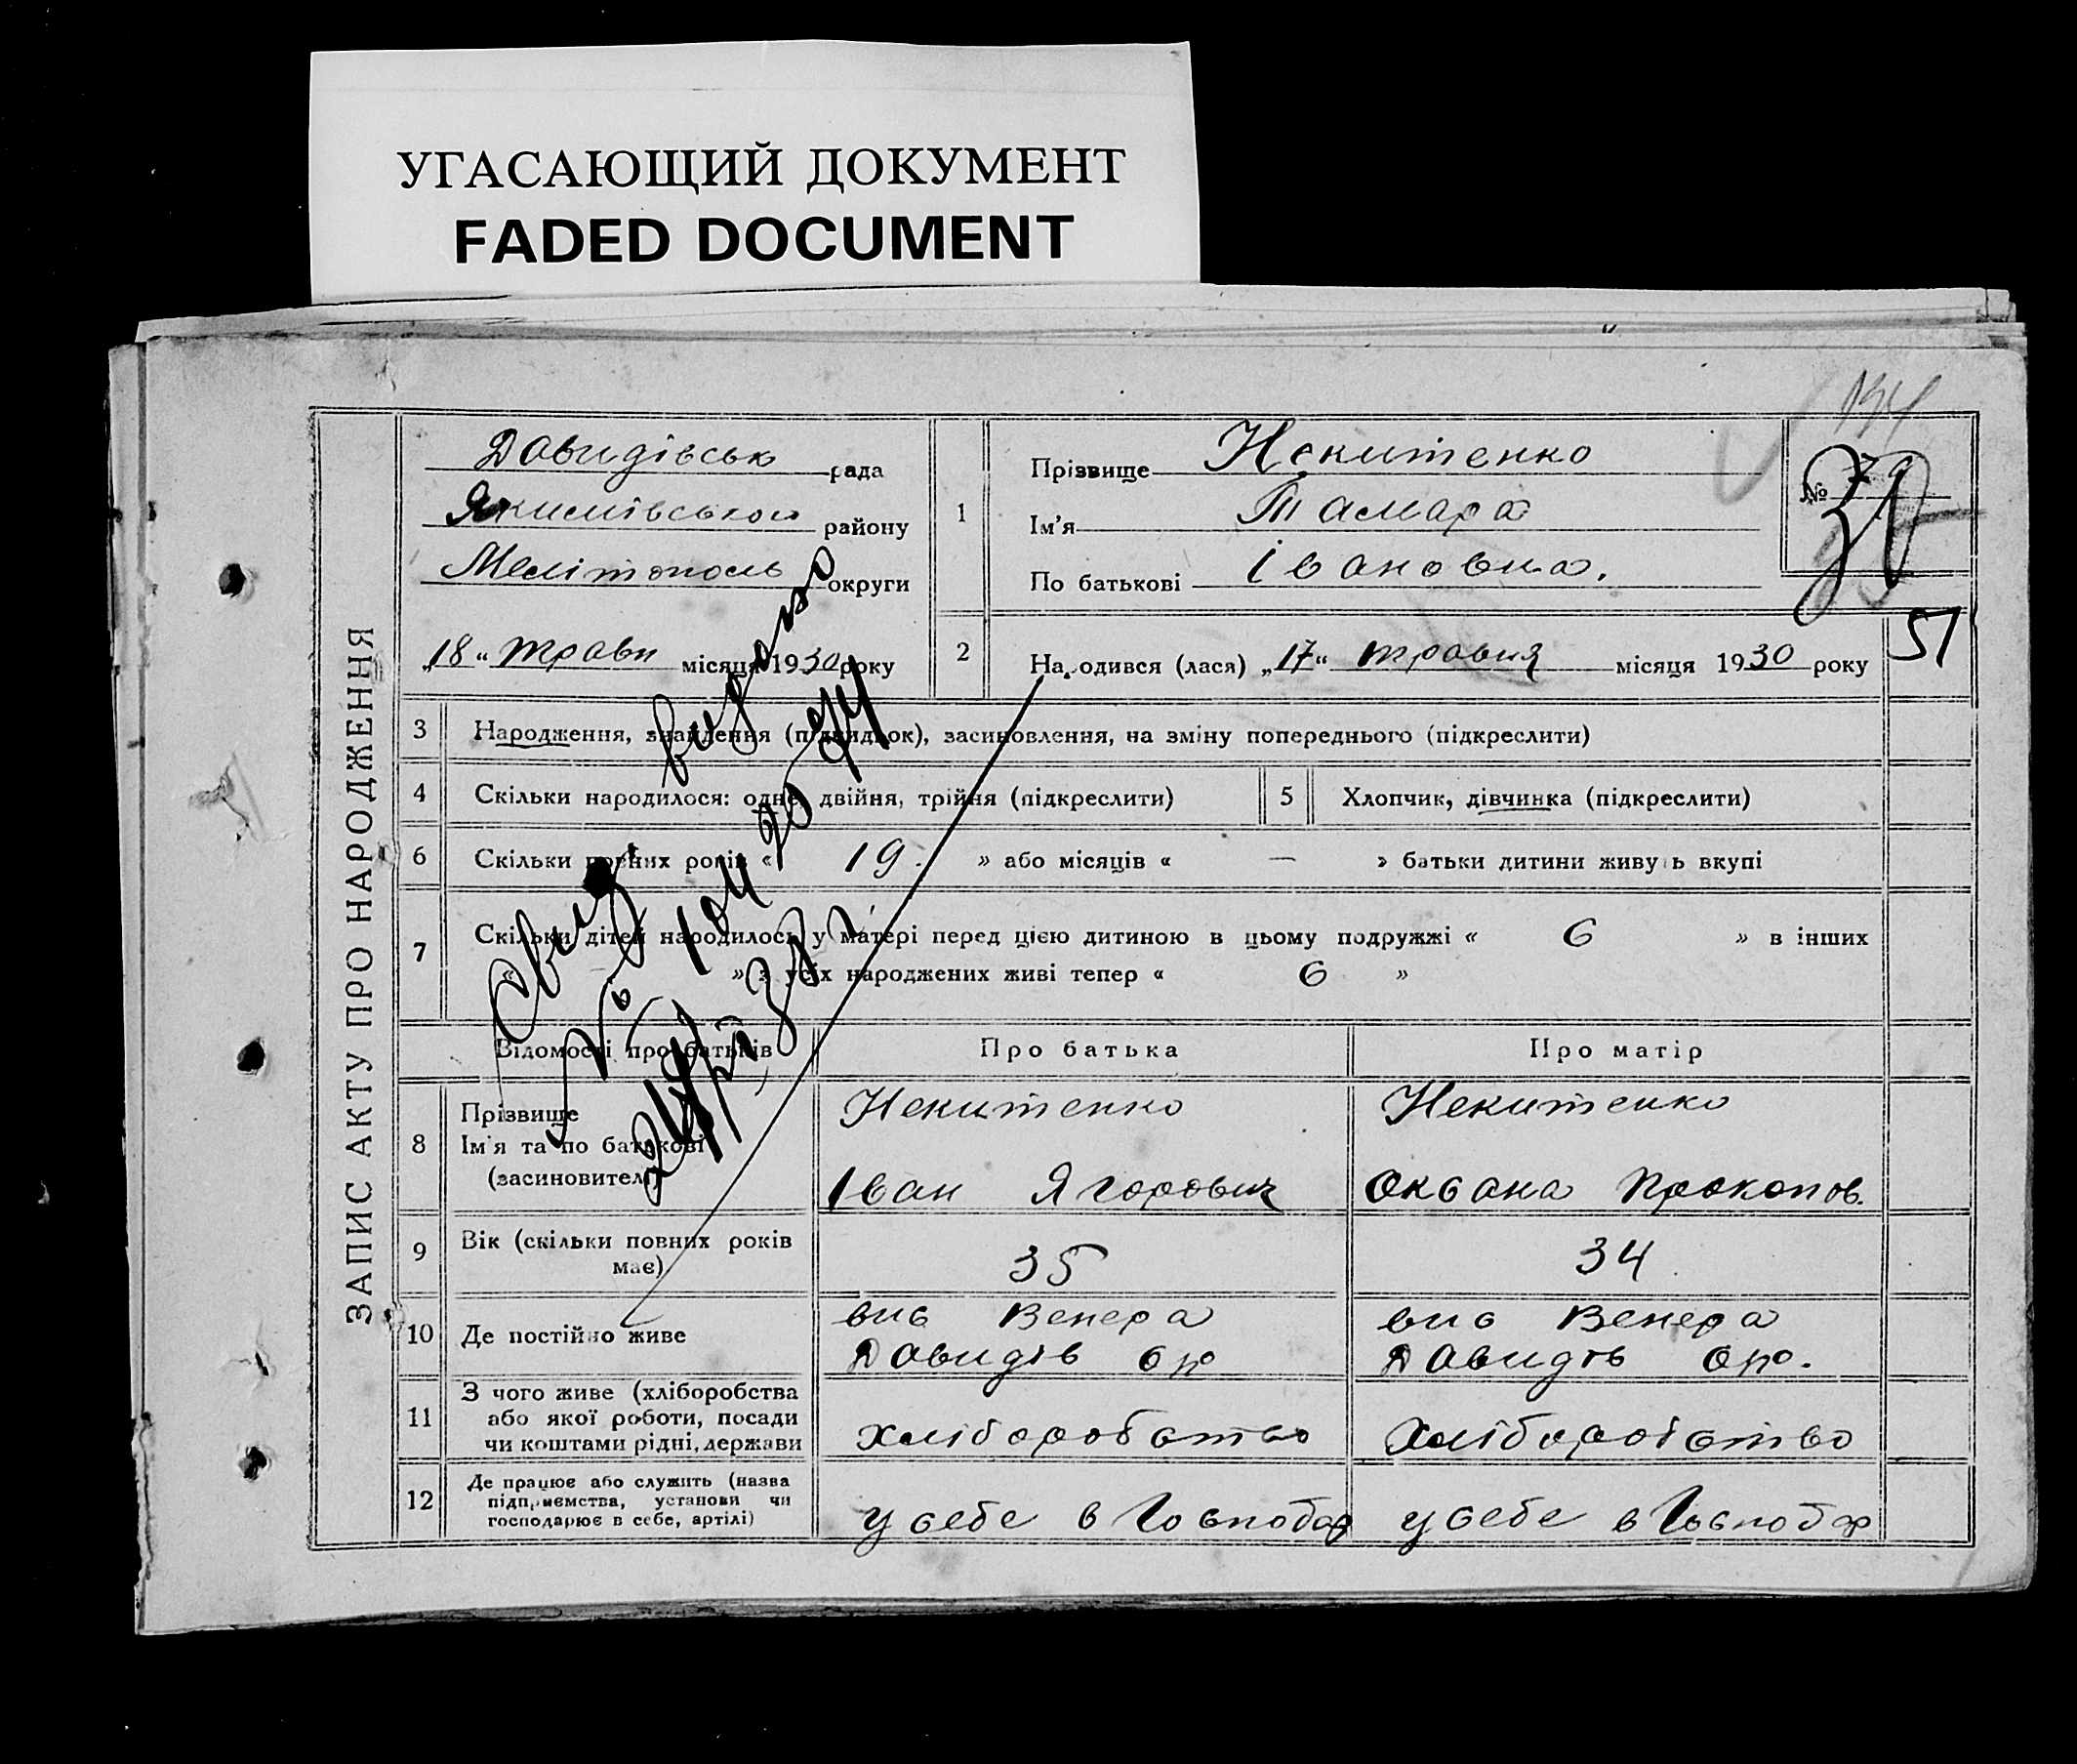 УГАСАЮЩИЙ ДОКУМЕНТ
FADED DOCUMENT
ЗАПИС АКТУ ПРО НАРОДЖЕННЯ
Давидівськ рада
Якимівською району
Мелітополь округи
„18“ травн місяця 1930 року
1
Прізвище Некитенко
Ім’я Тамара
По батькові Івановна.
№
51
2 Народився (лася) „17“ травня місяця 1930 року
3 Народження, знайдення (підкидьок), засиновлення, на зміну попереднього (підкреслити)
4 Скільки народилося: одне, двійня, трійня (підкреслити)
5 Хлопчик, дівчинка (підкреслити)
6 Скільки повних років « 19. » або місяців « — » батьки дитини живуть вкупі
7 Скільки дітей народилось у матері перед цією дитиною в цьому подружжі « 6 » в інших
« » з усіх народжених живі тепер « 6 »
Відомості про батьків
Про батька
Про матір
8 Прізвище
Ім’я та по батькові
(засиновителі)
Некитенко
Іван Ягорович
Некитенко
Оксана Прокопов.
9 Вік (скільки повних років
має)
35
34
10 Де постійно живе
вис Венера
Давидів с/р
вис Венера
Давидів с/р.
11 З чого живе (хліборобства
або якої роботи, посади
чи коштами рідні, держави
хліборобство
хліборобство
12 Де працює або служить (назва
підприємства, установи чи
господарює в себе, артілі)
у себе в Господар
у себе в Господар
Свид. видано